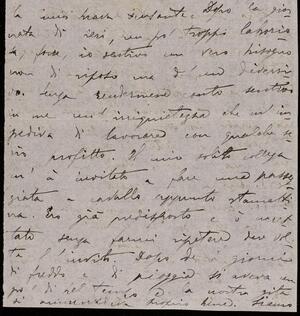 la mia
Dopo la gior
nata di ieri, un po' troppo laborio
sa forse, io sentivo un vero bisogno
non di riposo ma d'un diversi
vo. senza rendermene conto sentivo
in me un' irrequietezza che m'im
pediva di lavorare con qualche se
rio profitto. Il mio solito collega
m'à invitato a fare una passeg
giata a cavallo appunto stamatti
na. Ero già predisposto e ò accet
tato senza farmi ripetere due vol
te l'invito. Dopo giorni
di freddo e di pioggia si aveva un
po' di bel tempo e la nostra gita
bene. Siamo